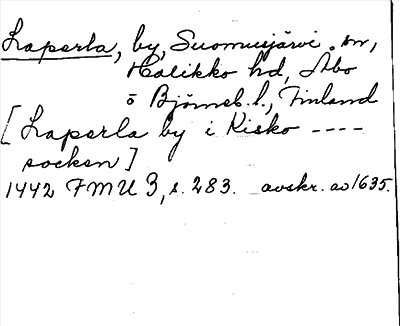 Laperla, by, Suomusjärvi sn,
Halikko hd, Åbo
o Björneb. l., Finland
[Laperla by i Kisko ----
socken]
1442 FMU 3, s. 283. avskr. av 1635.